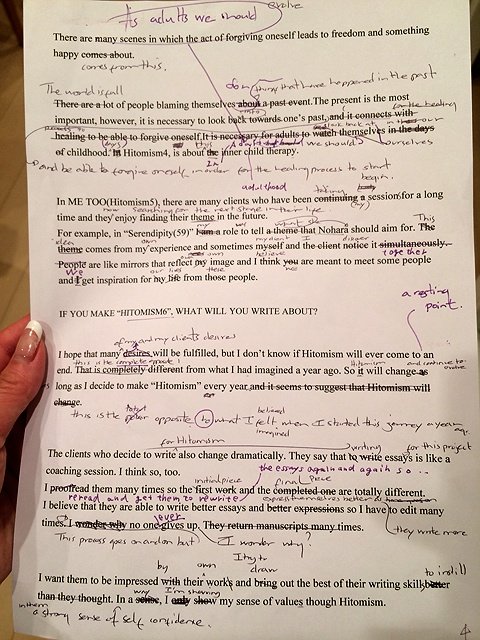 evolve
As adults we should
There are many scenes in which the act of forgiving oneself leads to freedom and something
happy comes about.
comes from this.
The world is full
things that have happened in the past
There are a lot of people blaming themselves about a past event. The present is the most
for the healing
important, however, it is necessary to look back towards one's past, and it connects with
healing to be able to forgive oneself. It is necessary for adults to watch themselves in the days
we should
ourselves
of childhood. In Hitomism4, is about the inner child therapy.
and be able to forgive oneself in order for the healing process to start
begin.
adulthood
taking
In ME TOO(Hitomism5), there are many clients who have been continuing a session for a long
searching for the next stage in their life.
time and they enjoy finding their theme in the future.
This
For example, in "Serendipity(59)" I am a role to tell a theme that Nohara should aim for. The
idea
own
theme comes from my experience and sometimes myself and the client notice it simultaneously.
together
own
believe
People are like mirrors that reflect my image and I think you are meant to meet some people
We
our lives
these
and I get inspiration for my life from those people.
IF YOU MAKE "HITOMISM6", WHAT WILL YOU WRITE ABOUT?
a resting
point.
of my and my clients desires
I hope that many desires will be fulfilled, but I don't know if Hitomism will ever come to an
this is the complete opposite
Hitomism
and continue to
evolve
end. That is completely different from what I had imagined a year ago. So it will change as
long as I decide to make "Hitomism" every year and it seems to suggest that Hitomism will
change.
this is the
total
opposite to what I felt when I started this journey a year ago.
believed
imagined
for Hitomism
writing
for this project
The clients who decide to write also change dramatically. They say that to write essays is like a
coaching session. I think so, too.
the essays again and again so...
initial piece
final piece
I proofread them many times so the first work and the completed one are totally different.
reread and get them to rewrite
express themselves better
I believe that they are able to write better essays and better expressions so I have to edit many
times. I wonder why no one gives up. They return manuscripts many times.
ever
they write more
This process goes on and on but
I wonder why?
I try to
by
own
draw
to instill
I want them to be impressed with their work's and bring out the best of their writing skill better
why
I'm showing
than they thought. In a sense, I only show my sense of values though Hitomism.
in them
a strong sense of self confidence.